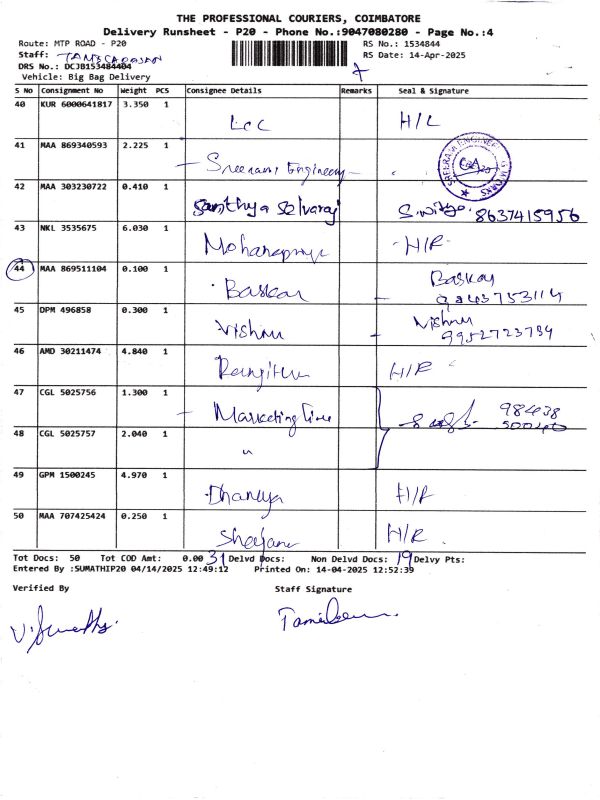 THE PROFESSIONAL COURIERS, COIMBATORE
Delivery Runsheet - P20 - Phone No.:9047080280 - Page No.:4
Route: MTP ROAD - P20 RS No.: 1534844
Staff: RS Date: 14-Apr-2025
DRS No.: DCJB153484404
Vehicle: Big Bag Delivery
S No Consignment No Weight PCS Consignee Details Remarks Seal & Signature
40 KUR 6000641817 3.350 1 H/L
41 MAA 869340593 2.225 1 Sreerani Engineering
42 MAA 303230722 0.410 1 Santhya Selvaraj 8637415956
43 NKL 3535675 6.030 1 H/R
44 MAA 869511104 0.100 1 Baskar Baskar
45 DPM 496858 0.300 1 Vishnu Vishnu
9952723734
46 AMD 30211474 4.840 1 H/R
47 CGL 5025756 1.300 1 Marketing Time
48 CGL 5025757 2.040 1 "
49 GPM 1500245 4.970 1 H/R
50 MAA 707425424 0.250 1 H/R
Tot Docs: 50 Tot COD Amt: 0.00 31 Delvd Docs: Non Delvd Docs: 19 Delvy Pts:
Entered By :SUMATHIP20 04/14/2025 12:49:12 Printed On: 14-04-2025 12:52:39
Verified By Staff Signature